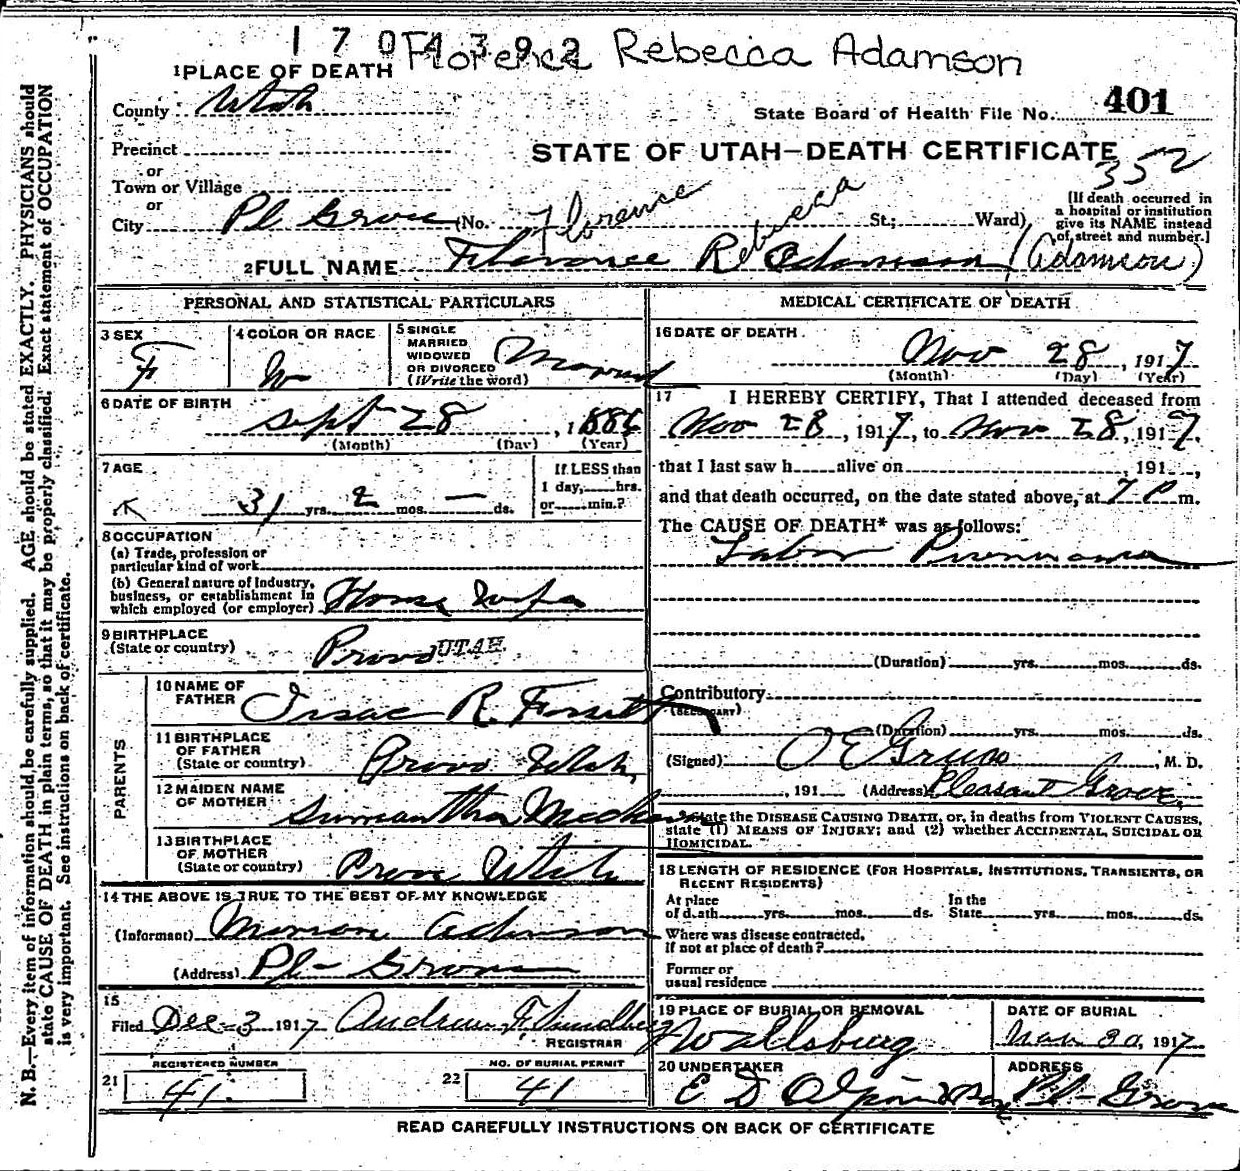 1704392 Florence Rebecca Adamson
1 PLACE OF DEATH
County Utah
State Board of Health File No. 401
Precinct
or
STATE OF UTAH—DEATH CERTIFICATE
352
Town or Village
or
City Pl Grove (No. St; Ward)
[If death occurred in
a hospital or institution
give its NAME instead
of street and number.]
Florence Rebecca
2 FULL NAME Florence R Adamson (Adamson)
PERSONAL AND STATISTICAL PARTICULARS
3 SEX
F
4 COLOR OR RACE
W
5 SINGLE
MARRIED
WIDOWED
OR DIVORCED
(Write the word)
Married
6 DATE OF BIRTH
Sept 28, 1886
(Month) (Day) (Year)
7 AGE
31 yrs. 2 mos. — ds.
If LESS than
1 day, hrs.
or min.?
8 OCCUPATION
(a) Trade, profession or
particular kind of work
(b) General nature of Industry,
business, or establishment in
which employed (or employer) House Wife
9 BIRTHPLACE
(State or country) Provo UTAH
PARENTS
10 NAME OF
FATHER Isaac R.
11 BIRTHPLACE
OF FATHER
(State or country) Provo Utah,
12 MAIDEN NAME
OF MOTHER
13 BIRTHPLACE
OF MOTHER
(State or country) Provo Utah
14 THE ABOVE IS TRUE TO THE BEST OF MY KNOWLEDGE
(Informant) Adamson
(Address) Pl- Grove
15
Filed Dec-3 1917 Andrew F. Sundberg
REGISTRAR
REGISTERED NUMBER
21 41.
NO. OF BURIAL PERMIT
22 41
MEDICAL CERTIFICATE OF DEATH
16 DATE OF DEATH
Nov 28, 1917
(Month) (Day) (Year)
17 I HEREBY CERTIFY, That I attended deceased from
Nov 28, 1917, to Nov 28, 1917.
that I last saw h alive on , 191 ,
and that death occurred, on the date stated above, at 7 P m.
The CAUSE OF DEATH* was as follows:
(Duration) yrs. mos. ds.
Contributory
(SECONDARY)
(Duration) yrs. mos. ds.
(Signed) O E Grua , M. D.
, 191 (Address) Pleasant Grove,
*State the DISEASE CAUSING DEATH, or, in deaths from VIOLENT CAUSES,
state (1) MEANS OF INJURY; and (2) whether ACCIDENTAL, SUICIDAL OR
HOMICIDAL.
18 LENGTH OF RESIDENCE (FOR HOSPITALS, INSTITUTIONS, TRANSIENTS, OR
RECENT RESIDENTS)
At place
of death yrs. mos. ds.
In the
State yrs. mos. ds.
Where was disease contracted,
if not at place of death?
Former or
usual residence
19 PLACE OF BURIAL OR REMOVAL
Wallsburg
DATE OF BURIAL
30, 1917
20 UNDERTAKER
E D Olpin & Son
ADDRESS
Pl- Grove
READ CAREFULLY INSTRUCTIONS ON BACK OF CERTIFICATE
N. B.—Every item of information should be carefully supplied. AGE should be stated EXACTLY. PHYSICIANS should
state CAUSE OF DEATH in plain terms, so that it may be properly classified. Exact statement of OCCUPATION
is very important. See instructions on back of certificate.